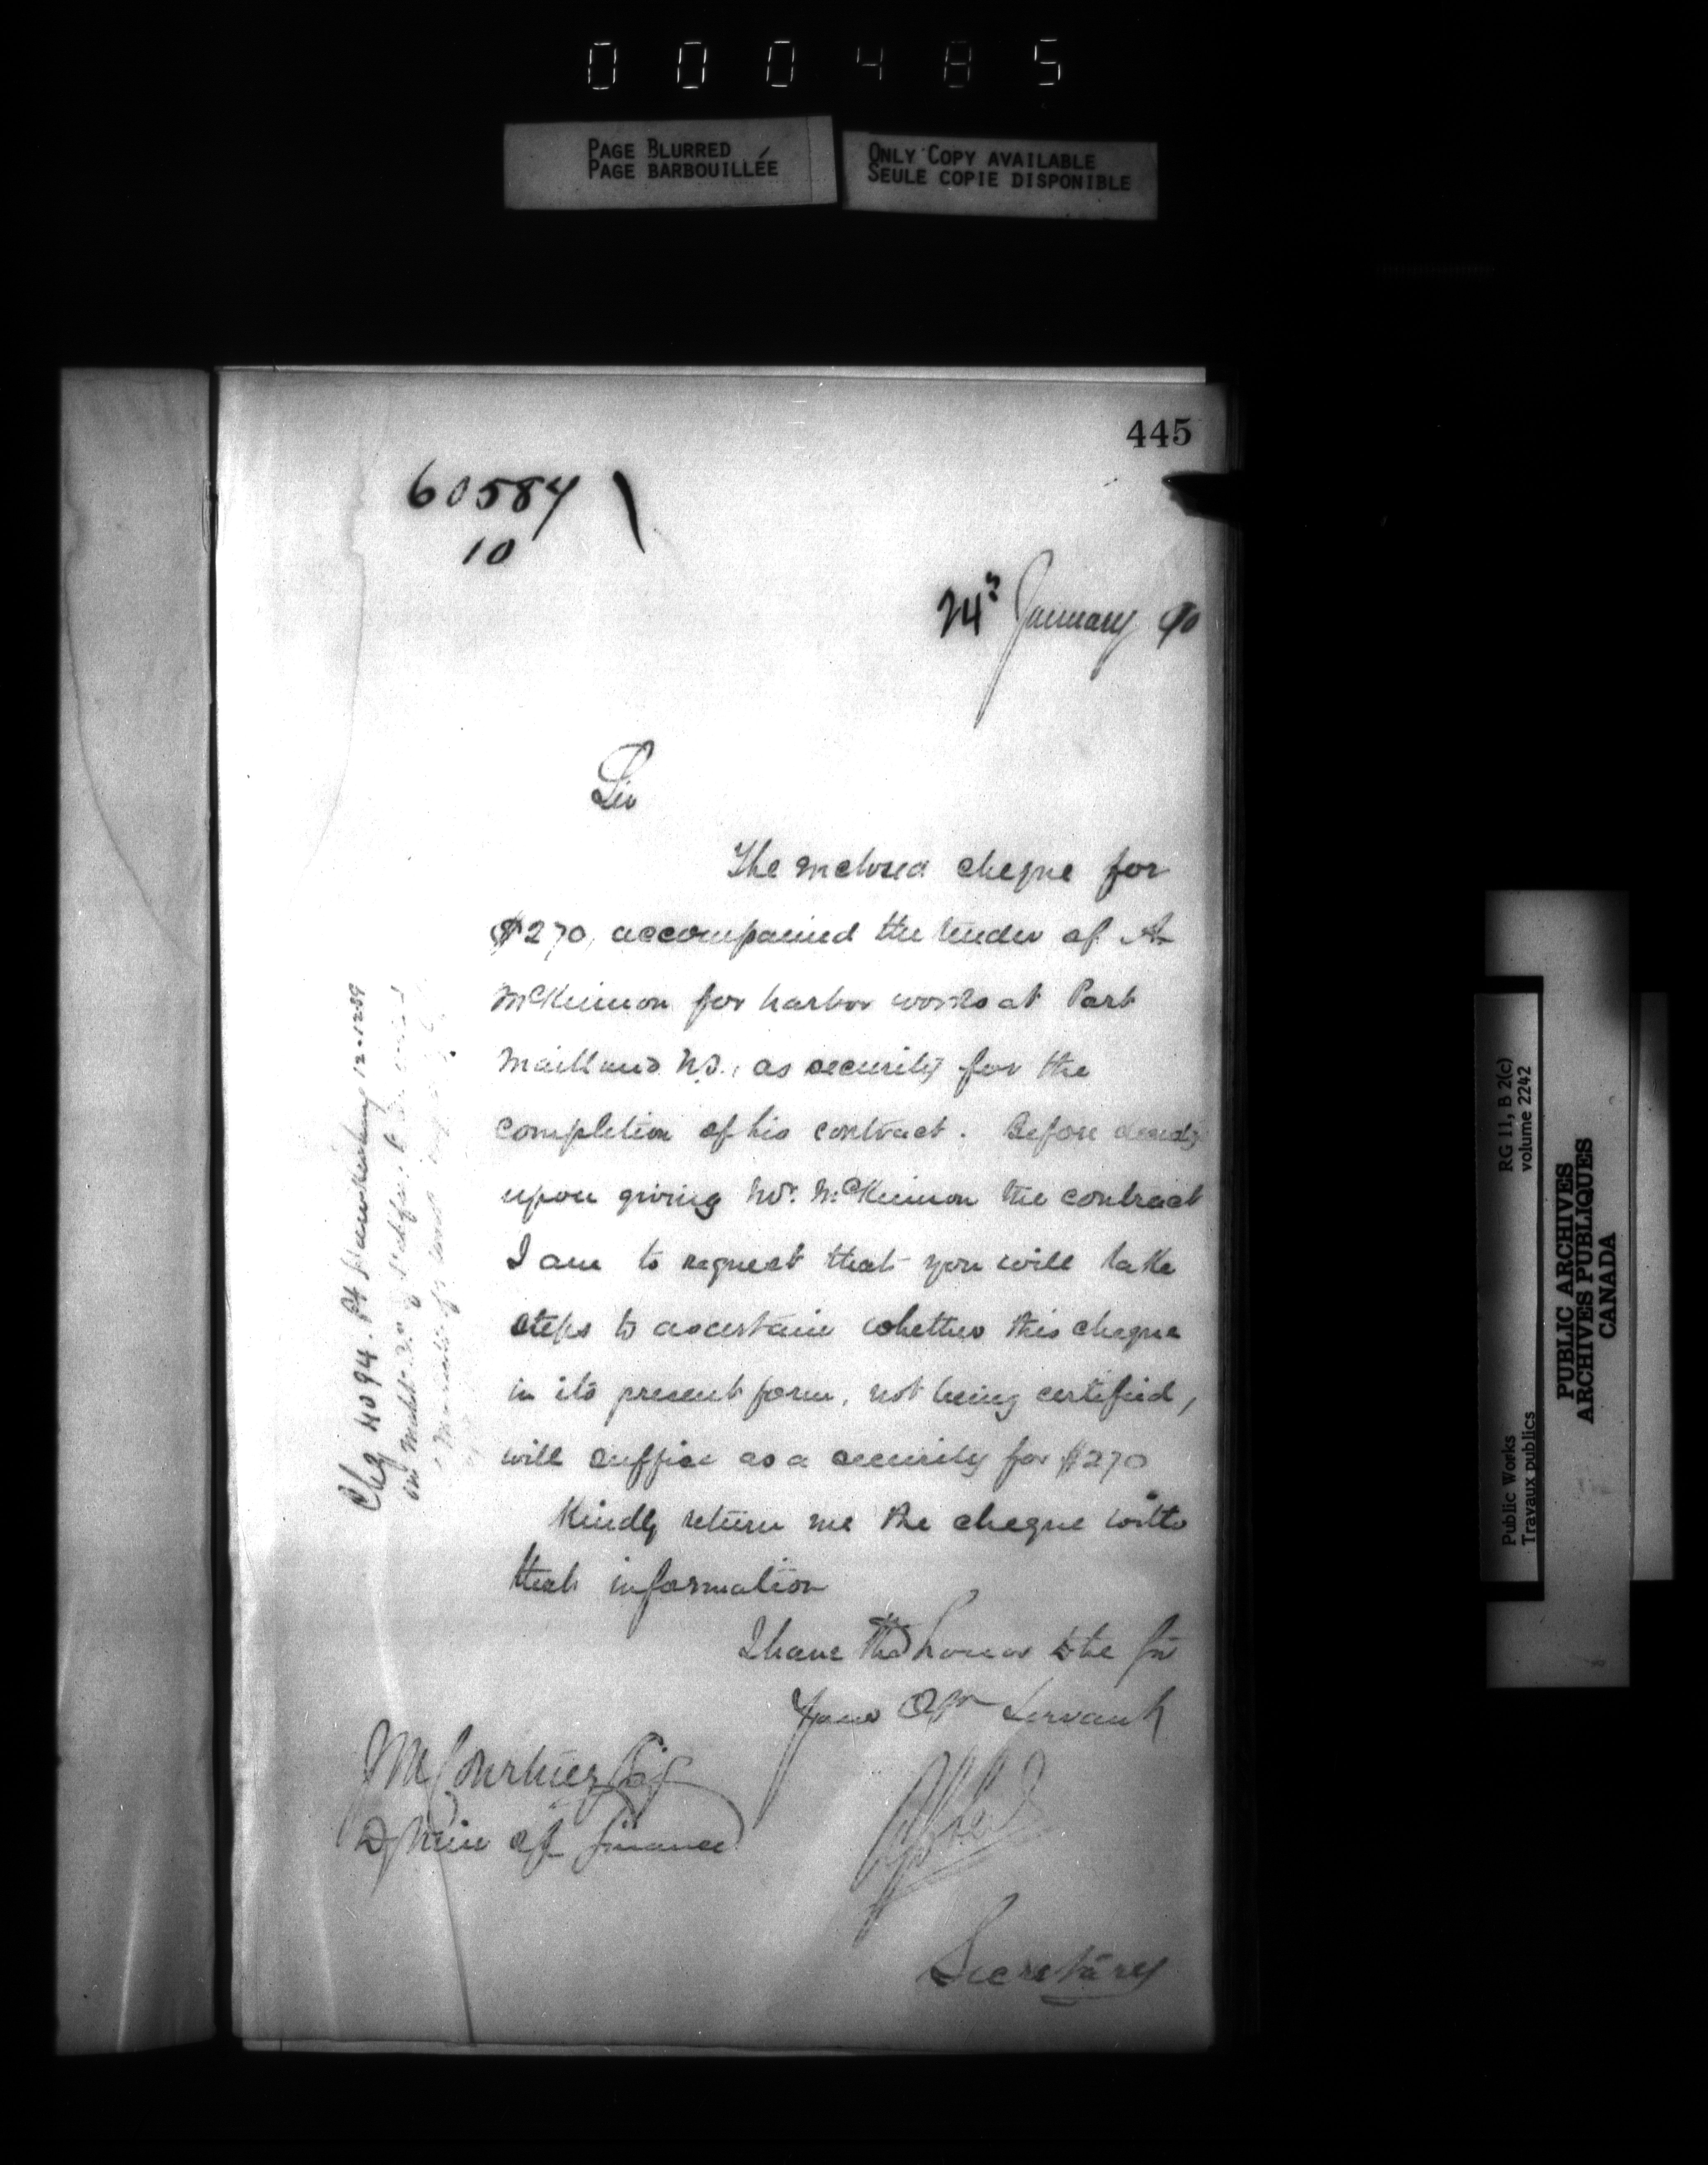 000485
PAGE BLURRED
PAGE BARBOUILLÉE
ONLY COPY AVAILABLE
SEULE COPIE DISPONIBLE
445
60584
10
24 January 90
Sir
The enclosed cheque for
$270, accompanied the tender of A
McKinnon for harbor works at Port
Maitland N.S., as security for the
completion of his contract. Before
upon giving Mr. McKinnon the contract
I am to request that you will take
steps to ascertain whether this cheque
in its present form, not being certified,
will suffice as a security for $270
Kindly return me the cheque with
that information
I have the honor to be Sir
Your Obt Servant
Secretary
J M Courtney Esq
D Min of Finance
Chq 4094. Pt Hawkesbury 12-12-89
RG 11, B 2(c)
volume 2242
Public Works
Travaux publics
PUBLIC ARCHIVES
ARCHIVES PUBLIQUES
CANADA